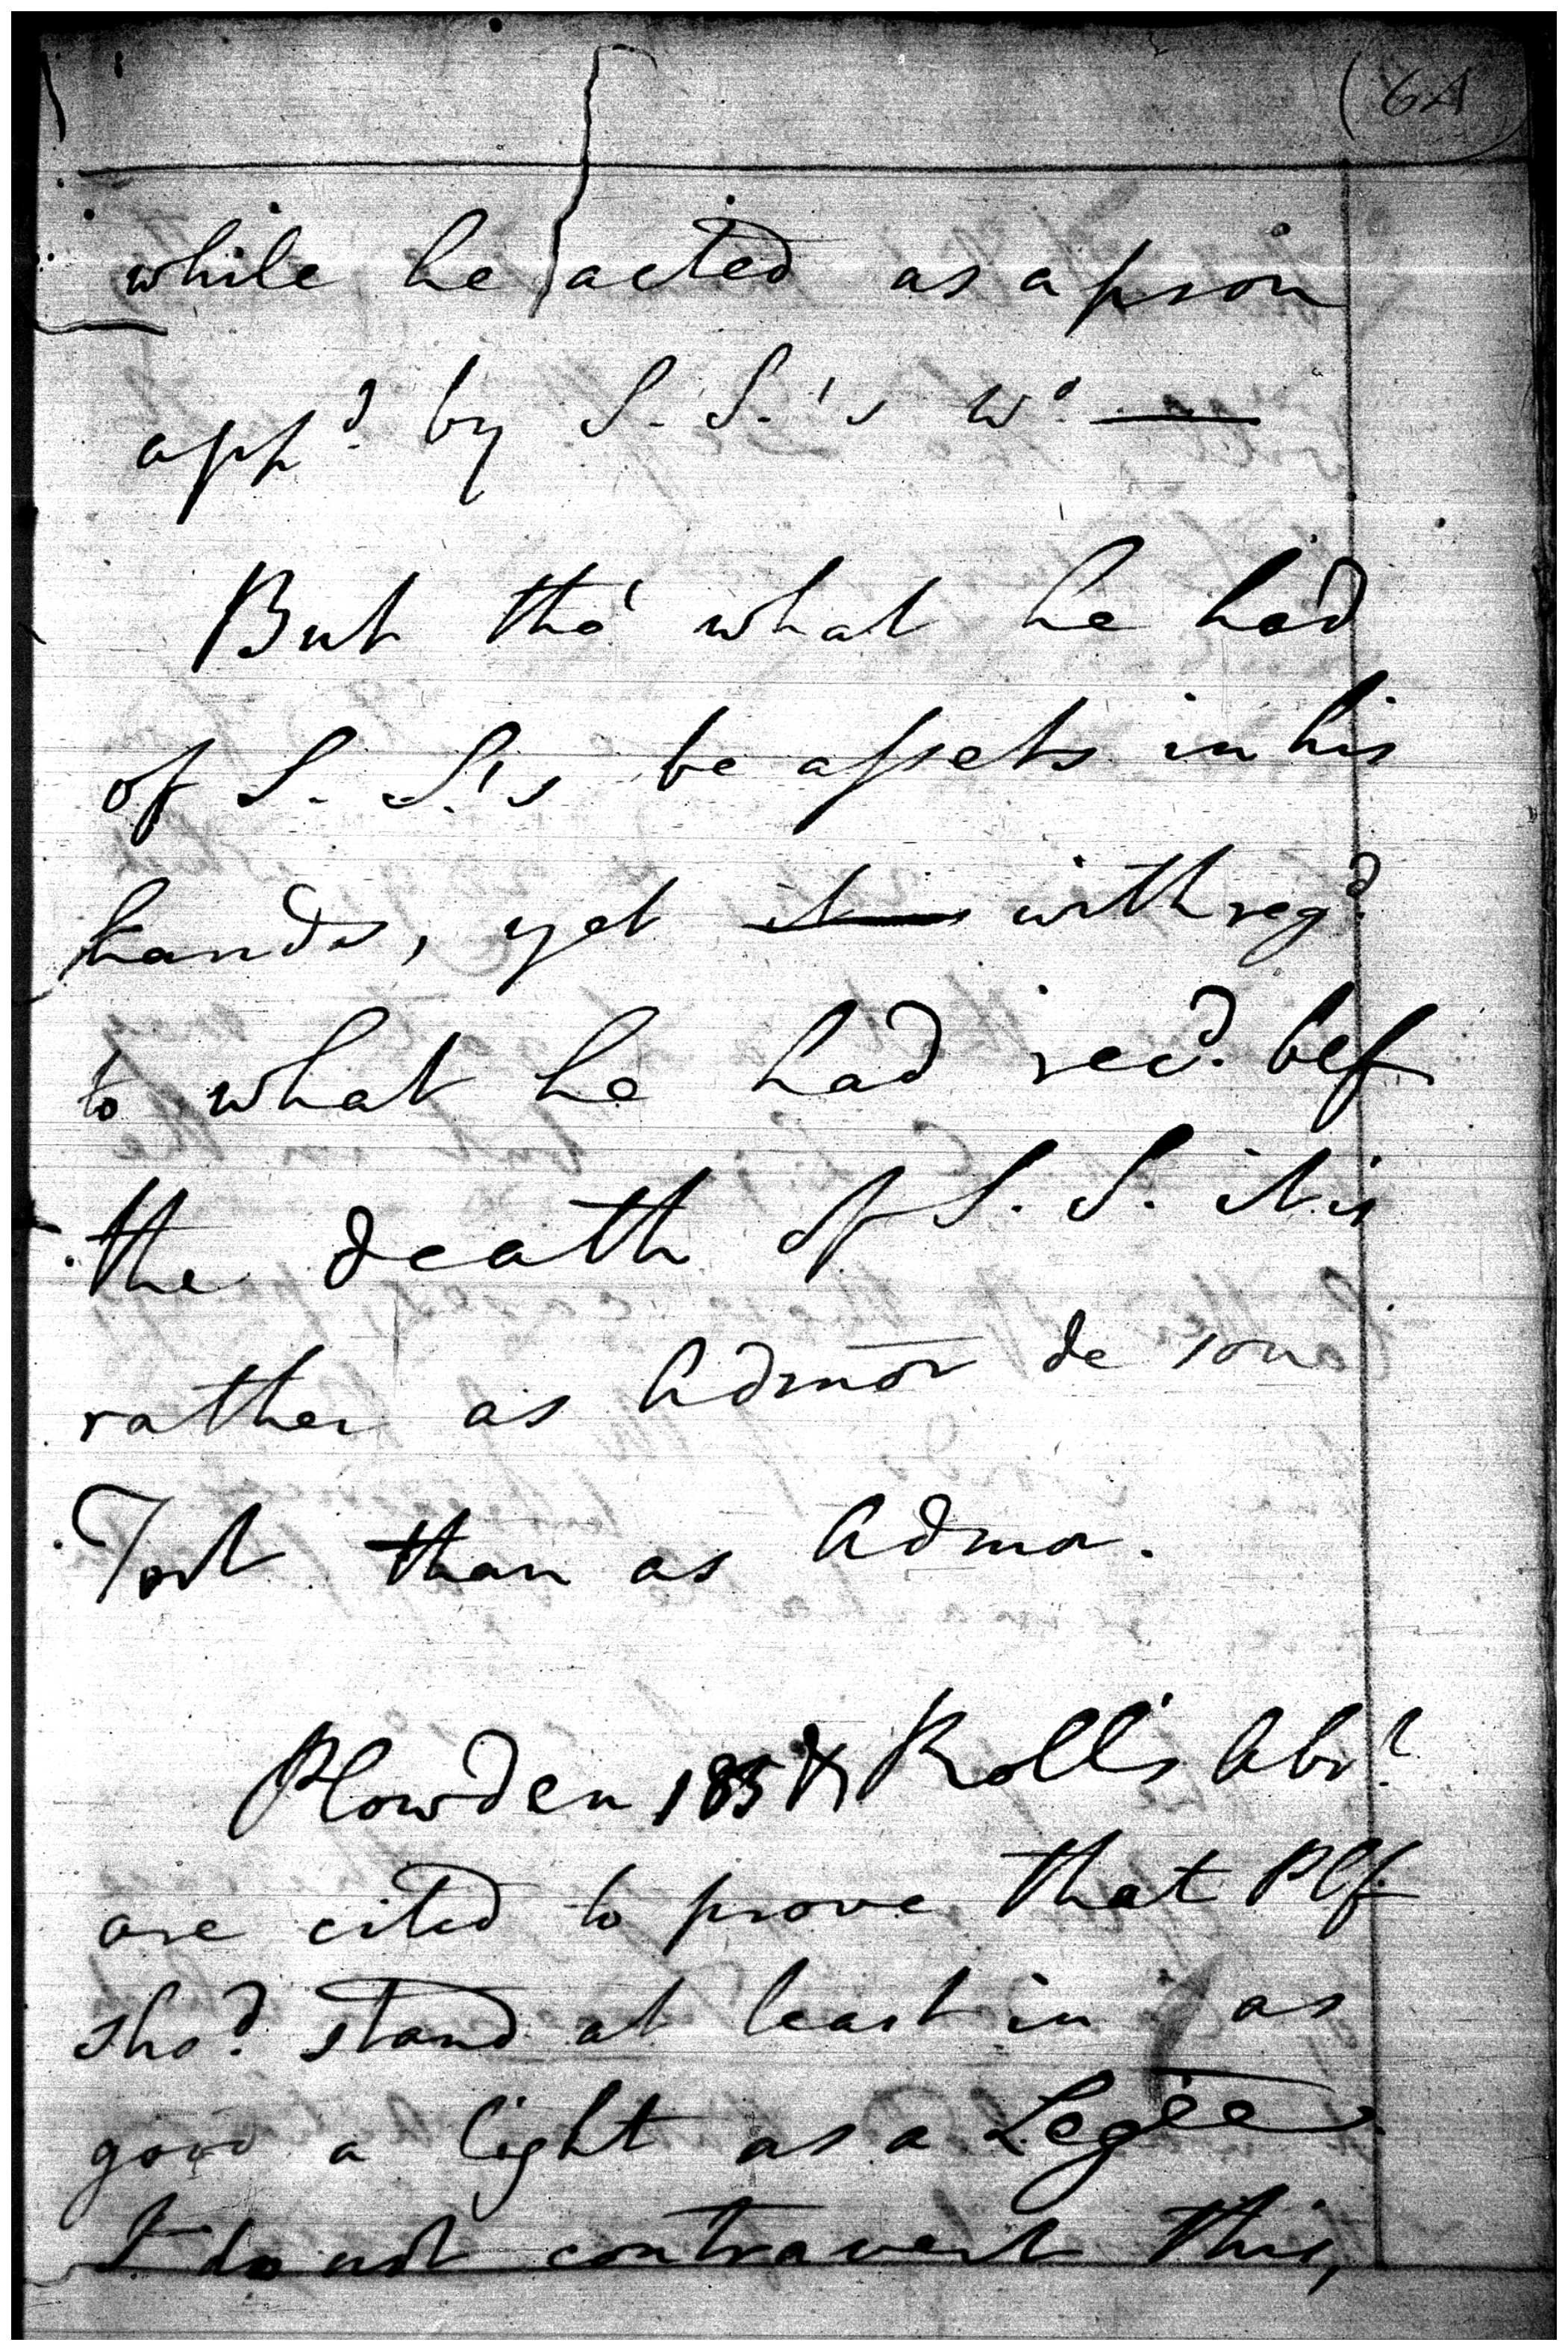 (64)
while he acted as a pson
app^d. by S. S.'s W^o. —
But tho' what he had
of S. S.'s be assets in his
hands, yet with reg^d.
to what he had rec^d. bef
the death of S. S. it is
rather as Admor de son
Tort than as Admor.
Plowden 185 & Roll's Abr^t.
are cited to prove that Plf
sho^d. stand at least in as
good a light as a Legee
I do not contravert this,